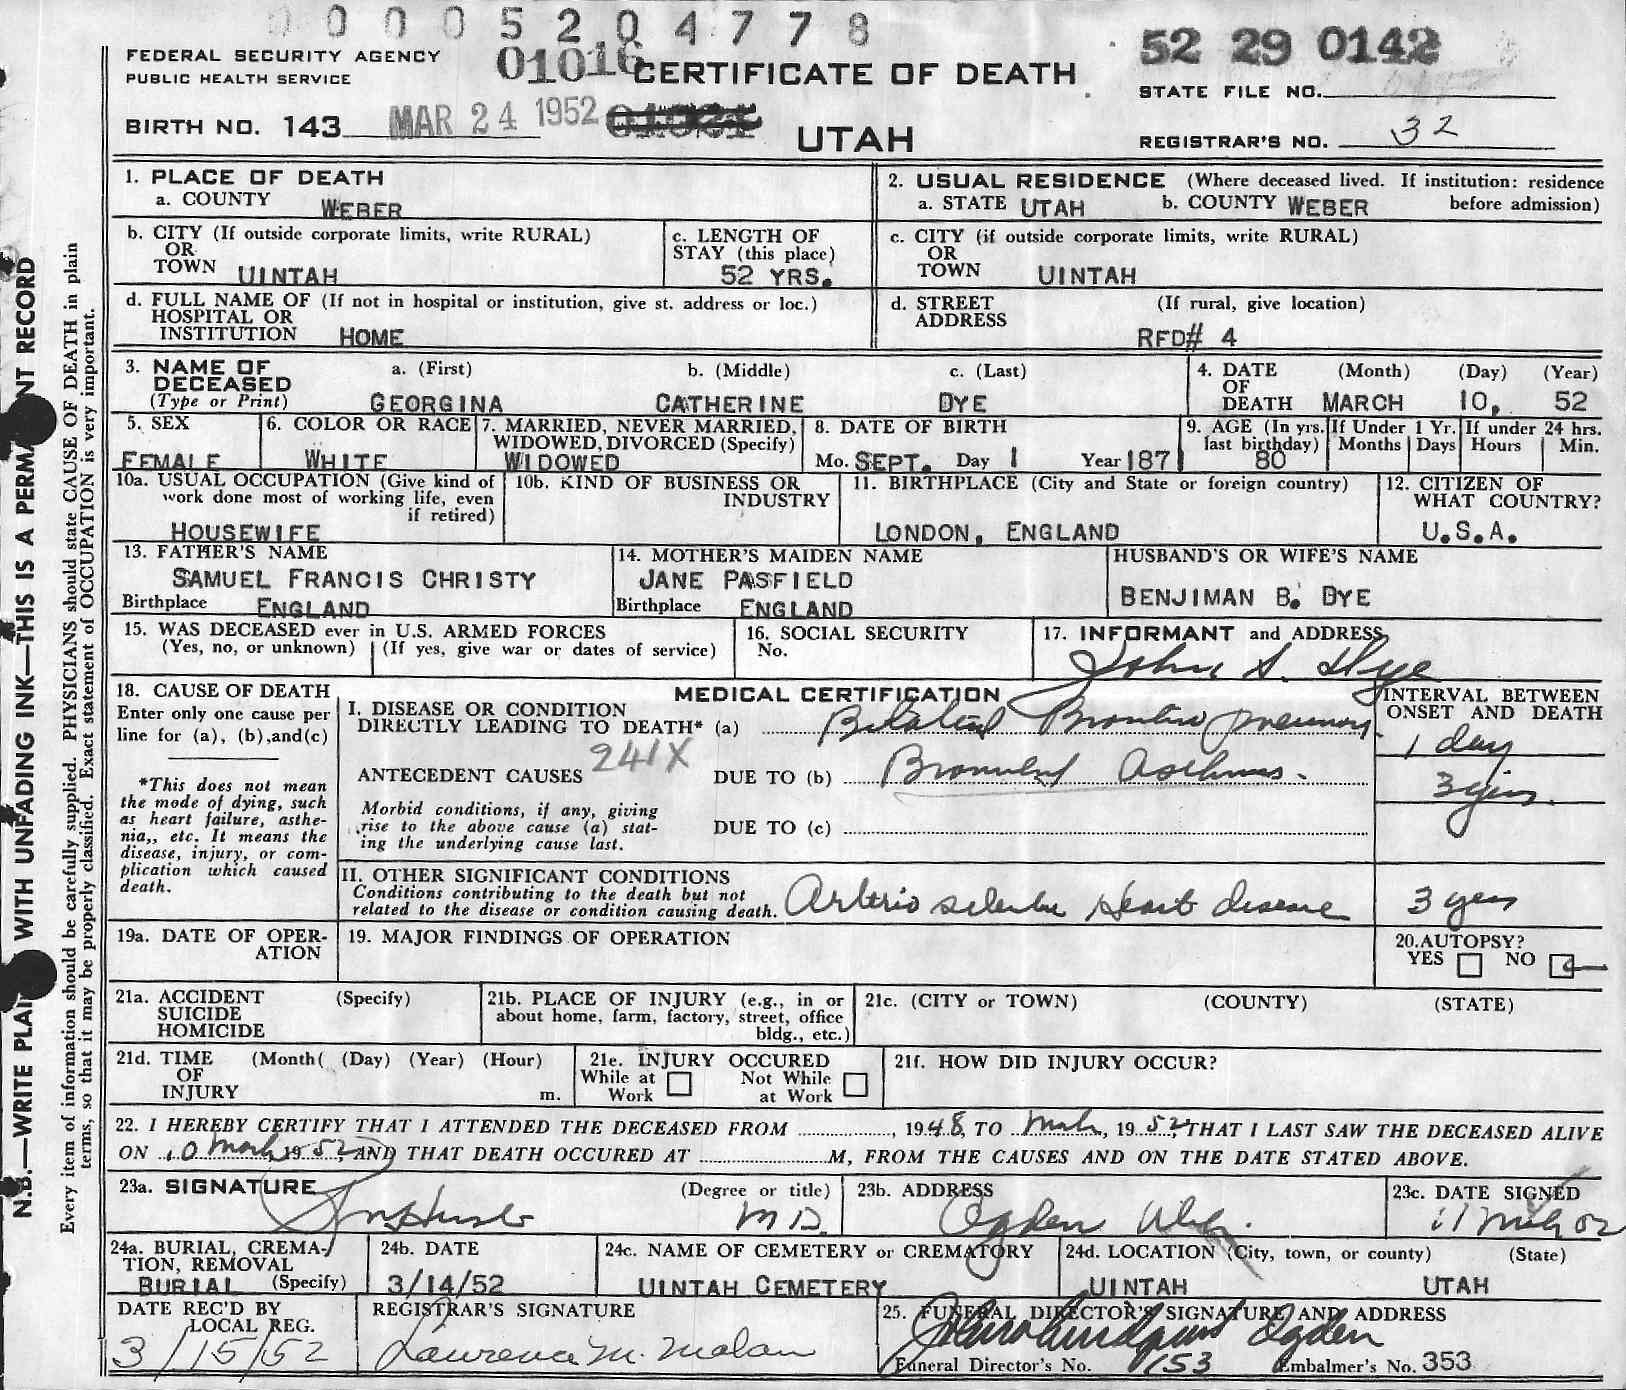 00005204778
FEDERAL SECURITY AGENCY
PUBLIC HEALTH SERVICE
01016
CERTIFICATE OF DEATH
52 29 0142
STATE FILE NO.
BIRTH NO. 143 MAR 24 1952
UTAH
REGISTRAR'S NO. 32
1. PLACE OF DEATH
a. COUNTY WEBER
2. USUAL RESIDENCE (Where deceased lived. If institution: residence before admission)
a. STATE UTAH b. COUNTY WEBER
b. CITY (If outside corporate limits, write RURAL)
OR
TOWN UINTAH
c. LENGTH OF
STAY (this place)
52 YRS.
c. CITY (if outside corporate limits, write RURAL)
OR
TOWN UINTAH
d. FULL NAME OF (If not in hospital or institution, give st. address or loc.)
HOSPITAL OR
INSTITUTION HOME
d. STREET (If rural, give location)
ADDRESS
RFD# 4
3. NAME OF DECEASED
(Type or Print)
a. (First) b. (Middle) c. (Last)
GEORGINA CATHERINE DYE
4. DATE OF DEATH (Month) (Day) (Year)
MARCH 10, 52
5. SEX
FEMALE
6. COLOR OR RACE
WHITE
7. MARRIED, NEVER MARRIED,
WIDOWED, DIVORCED (Specify)
WIDOWED
8. DATE OF BIRTH
Mo. SEPT. Day 1 Year 1871
9. AGE (In yrs. last birthday)
80
If Under 1 Yr.
Months Days
If under 24 hrs.
Hours Min.
10a. USUAL OCCUPATION (Give kind of
work done most of working life, even
if retired)
HOUSEWIFE
10b. KIND OF BUSINESS OR
INDUSTRY
11. BIRTHPLACE (City and State or foreign country)
LONDON, ENGLAND
12. CITIZEN OF
WHAT COUNTRY?
U.S.A.
13. FATHER'S NAME
SAMUEL FRANCIS CHRISTY
Birthplace ENGLAND
14. MOTHER'S MAIDEN NAME
JANE PASFIELD
Birthplace ENGLAND
HUSBAND'S OR WIFE'S NAME
BENJIMAN B. DYE
15. WAS DECEASED ever in U.S. ARMED FORCES
(Yes, no, or unknown) (If yes, give war or dates of service)
16. SOCIAL SECURITY
No.
17. INFORMANT and ADDRESS
John S. Dye
18. CAUSE OF DEATH
Enter only one cause per
line for (a), (b), and (c)
*This does not mean
the mode of dying, such
as heart failure, asthe-
nia,, etc. It means the
disease, injury, or com-
plication which caused
death.
MEDICAL CERTIFICATION
I. DISEASE OR CONDITION
DIRECTLY LEADING TO DEATH* (a) Bilateral Broncho pneumony
241X
ANTECEDENT CAUSES DUE TO (b) Bronchial Asthma.
Morbid conditions, if any, giving
rise to the above cause (a) stat-
ing the underlying cause last.
DUE TO (c)
INTERVAL BETWEEN
ONSET AND DEATH
1 day
3 yrs.
II. OTHER SIGNIFICANT CONDITIONS
Conditions contributing to the death but not
related to the disease or condition causing death.
Arterio sclerotic Heart disease 3 yrs
19a. DATE OF OPER-
ATION
19. MAJOR FINDINGS OF OPERATION
20. AUTOPSY?
YES NO
21a. ACCIDENT (Specify)
SUICIDE
HOMICIDE
21b. PLACE OF INJURY (e.g., in or
about home, farm, factory, street, office
bldg., etc.)
21c. (CITY or TOWN) (COUNTY) (STATE)
21d. TIME (Month( (Day) (Year) (Hour)
OF
INJURY m.
21e. INJURY OCCURED
While at Work Not While at Work
21f. HOW DID INJURY OCCUR?
22. I HEREBY CERTIFY THAT I ATTENDED THE DECEASED FROM , 1948, TO March, 1952, THAT I LAST SAW THE DECEASED ALIVE
ON 10 March 1952, AND THAT DEATH OCCURED AT M, FROM THE CAUSES AND ON THE DATE STATED ABOVE.
23a. SIGNATURE (Degree or title)
M D.
23b. ADDRESS
Ogden Utah.
23c. DATE SIGNED
11 March 52
24a. BURIAL, CREMA-
TION, REMOVAL
BURIAL (Specify)
24b. DATE
3/14/52
24c. NAME OF CEMETERY or CREMATORY
UINTAH CEMETERY
24d. LOCATION (City, town, or county) (State)
UINTAH UTAH
DATE REC'D BY
LOCAL REG.
3/15/52
REGISTRAR'S SIGNATURE
Lawrence M. Malan
25. FUNERAL DIRECTOR'S SIGNATURE AND ADDRESS
Ogden
Funeral Director's No. 153 Embalmer's No. 353
N.B.—WRITE PLAI WITH UNFADING INK—THIS IS A PERMA NT RECORD
Every item of information should be carefully supplied. PHYSICIANS should state CAUSE OF DEATH in plain
terms, so that it may be properly classified. Exact statement of OCCUPATION is very important.